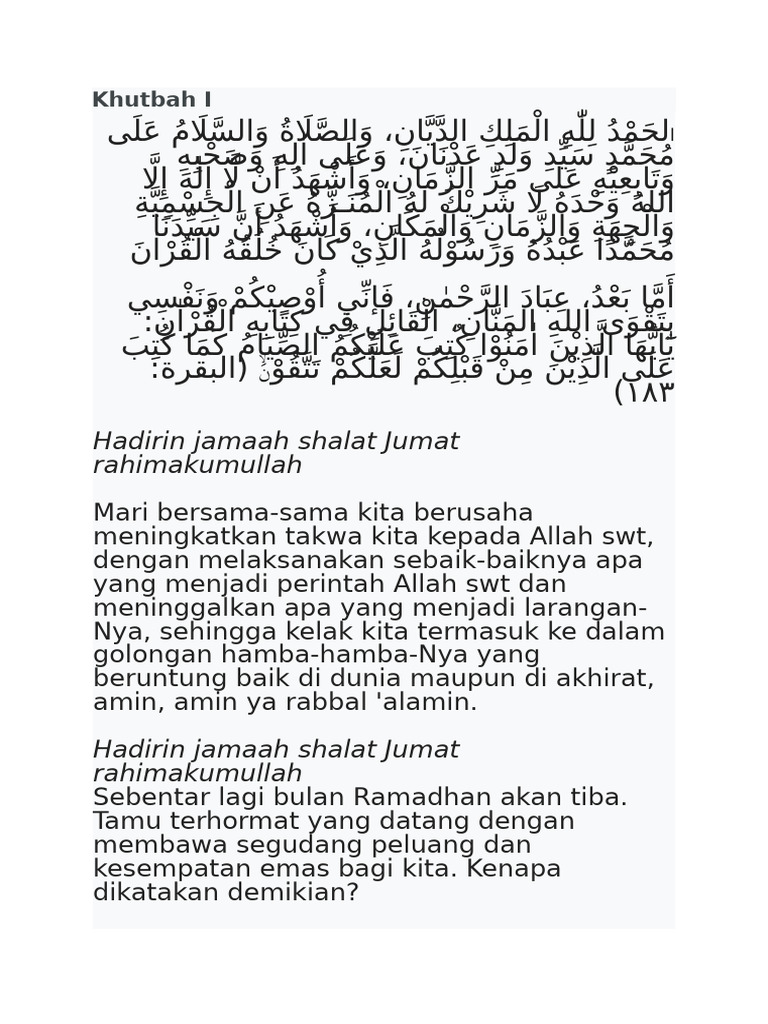 Khutbah I
الحَمْدُ لِلّٰهِ الْمَلِكِ الدَّيَّانِ، وَالصَّلَاةُ وَالسَّلَامُ عَلَى
مُحَمَّدٍ سَيِّدِ وَلَدِ عَدْنَانَ، وَعَلَى اٰلِهِ وَصَحْبِهِ
وَتَابِعِيْهِ عَلَى مَرِّ الزَّمَانِ، وَأَشْهَدُ أَنْ لَّا إِلٰهَ إِلَّا
اللهُ وَحْدَهُ لَا شَرِيْكَ لَهُ الْمُنَـزَّهُ عَنِ الْجِسْمِيَّةِ
وَالْجِهَةِ وَالزَّمَانِ وَالْمَكَانِ، وَأَشْهَدُ أَنَّ سَيِّدَنَا
مُحَمَّدًا عَبْدُهُ وَرَسُوْلُهُ الَّذِيْ كَانَ خُلُقُهُ الْقُرْاٰنَ
أَمَّا بَعْدُ، عِبَادَ الرَّحْمٰنِ، فَإنِّي أُوْصِيْكُمْ وَنَفْسِي
بِتَقْوَى اللهِ المَنَّانِ، الْقَائِلِ فِي كِتَابِهِ الْقُرْاٰنِ:
يٰٓاَيُّهَا الَّذِيْنَ اٰمَنُوْا كُتِبَ عَلَيْكُمُ الصِّيَامُ كَمَا كُتِبَ
عَلَى الَّذِيْنَ مِنْ قَبْلِكُمْ لَعَلَّكُمْ تَتَّقُوْنَۙ (البقرة:
١٨٣)
Hadirin jamaah shalat Jumat
rahimakumullah
Mari bersama-sama kita berusaha
meningkatkan takwa kita kepada Allah swt,
dengan melaksanakan sebaik-baiknya apa
yang menjadi perintah Allah swt dan
meninggalkan apa yang menjadi larangan-
Nya, sehingga kelak kita termasuk ke dalam
golongan hamba-hamba-Nya yang
beruntung baik di dunia maupun di akhirat,
amin, amin ya rabbal 'alamin.
Hadirin jamaah shalat Jumat
rahimakumullah
Sebentar lagi bulan Ramadhan akan tiba.
Tamu terhormat yang datang dengan
membawa segudang peluang dan
kesempatan emas bagi kita. Kenapa
dikatakan demikian?